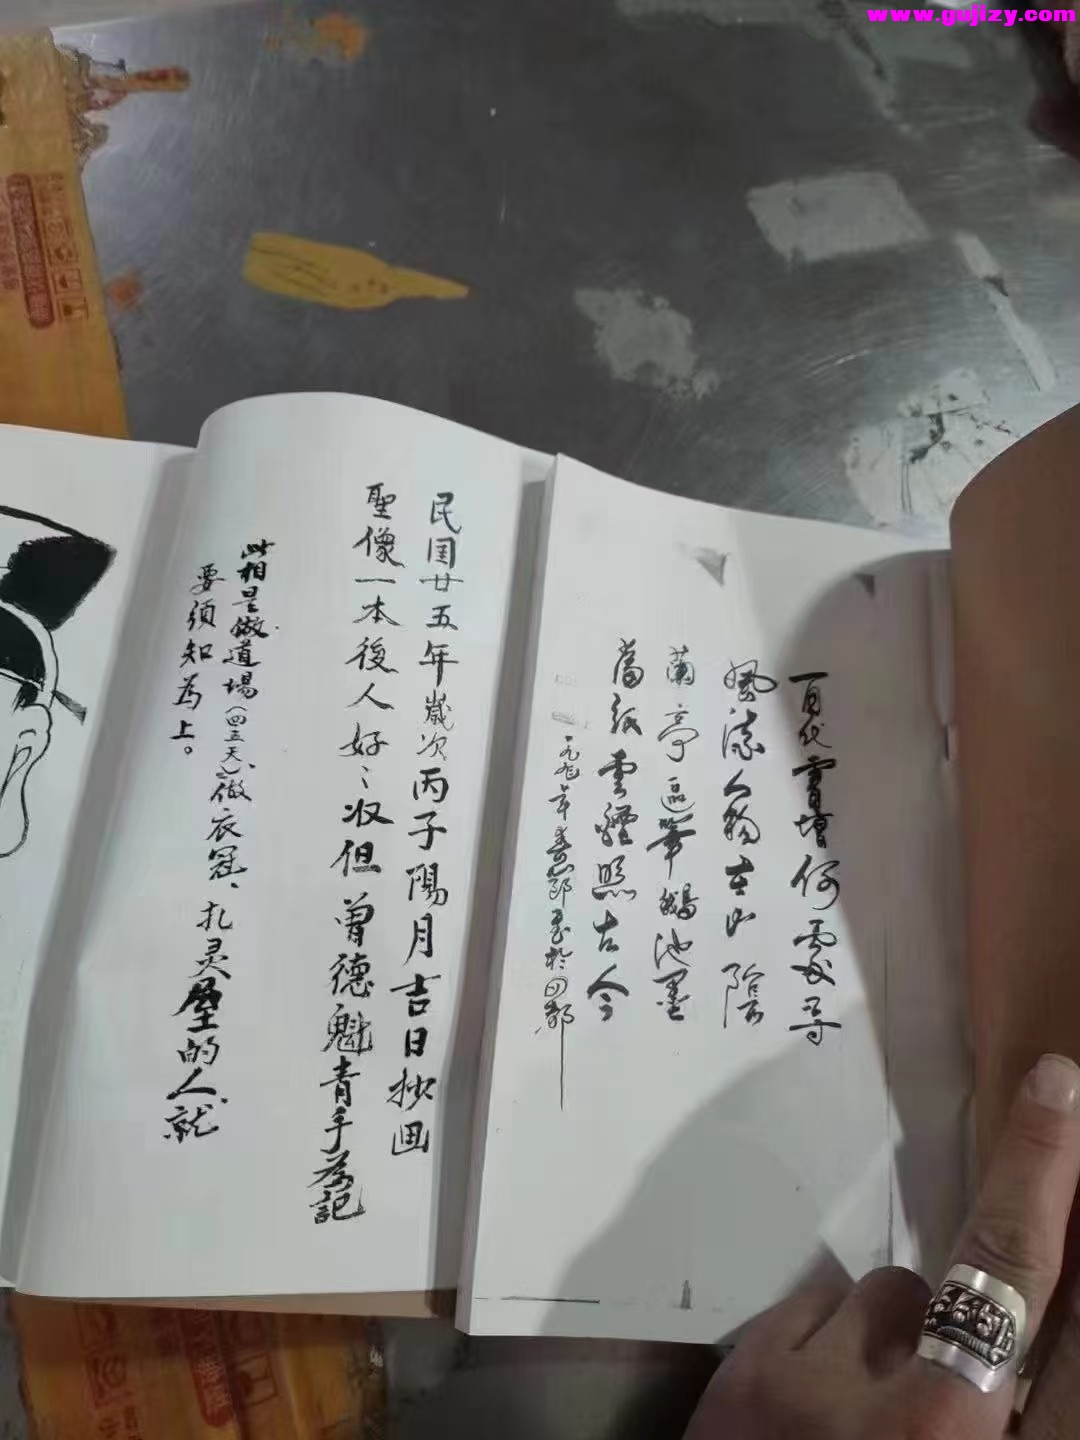 www.gujizy.com
百代書壇何處尋
風流人物在山陰
蘭亭逗筆鵝池墨
舊紙雲煙照古今
一九九年春
於四都
民国廿五年歲次丙子陽月吉日抄画
聖像一本後人好〻収但曾德魁青手為記
此相是做道場(四五天)、做衣冠、扎灵屋的人、就
要須知為上。